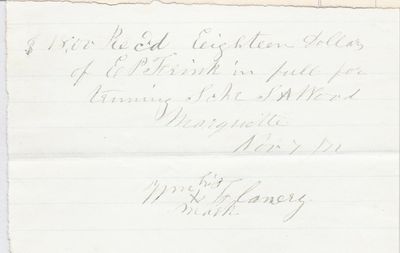 $ 18.00 Rec'd Eighteen dollars
of E P Frink in full for
trimming Schr S A Wood
Marquette
Nov 7
his
Wm X Flanery
mark